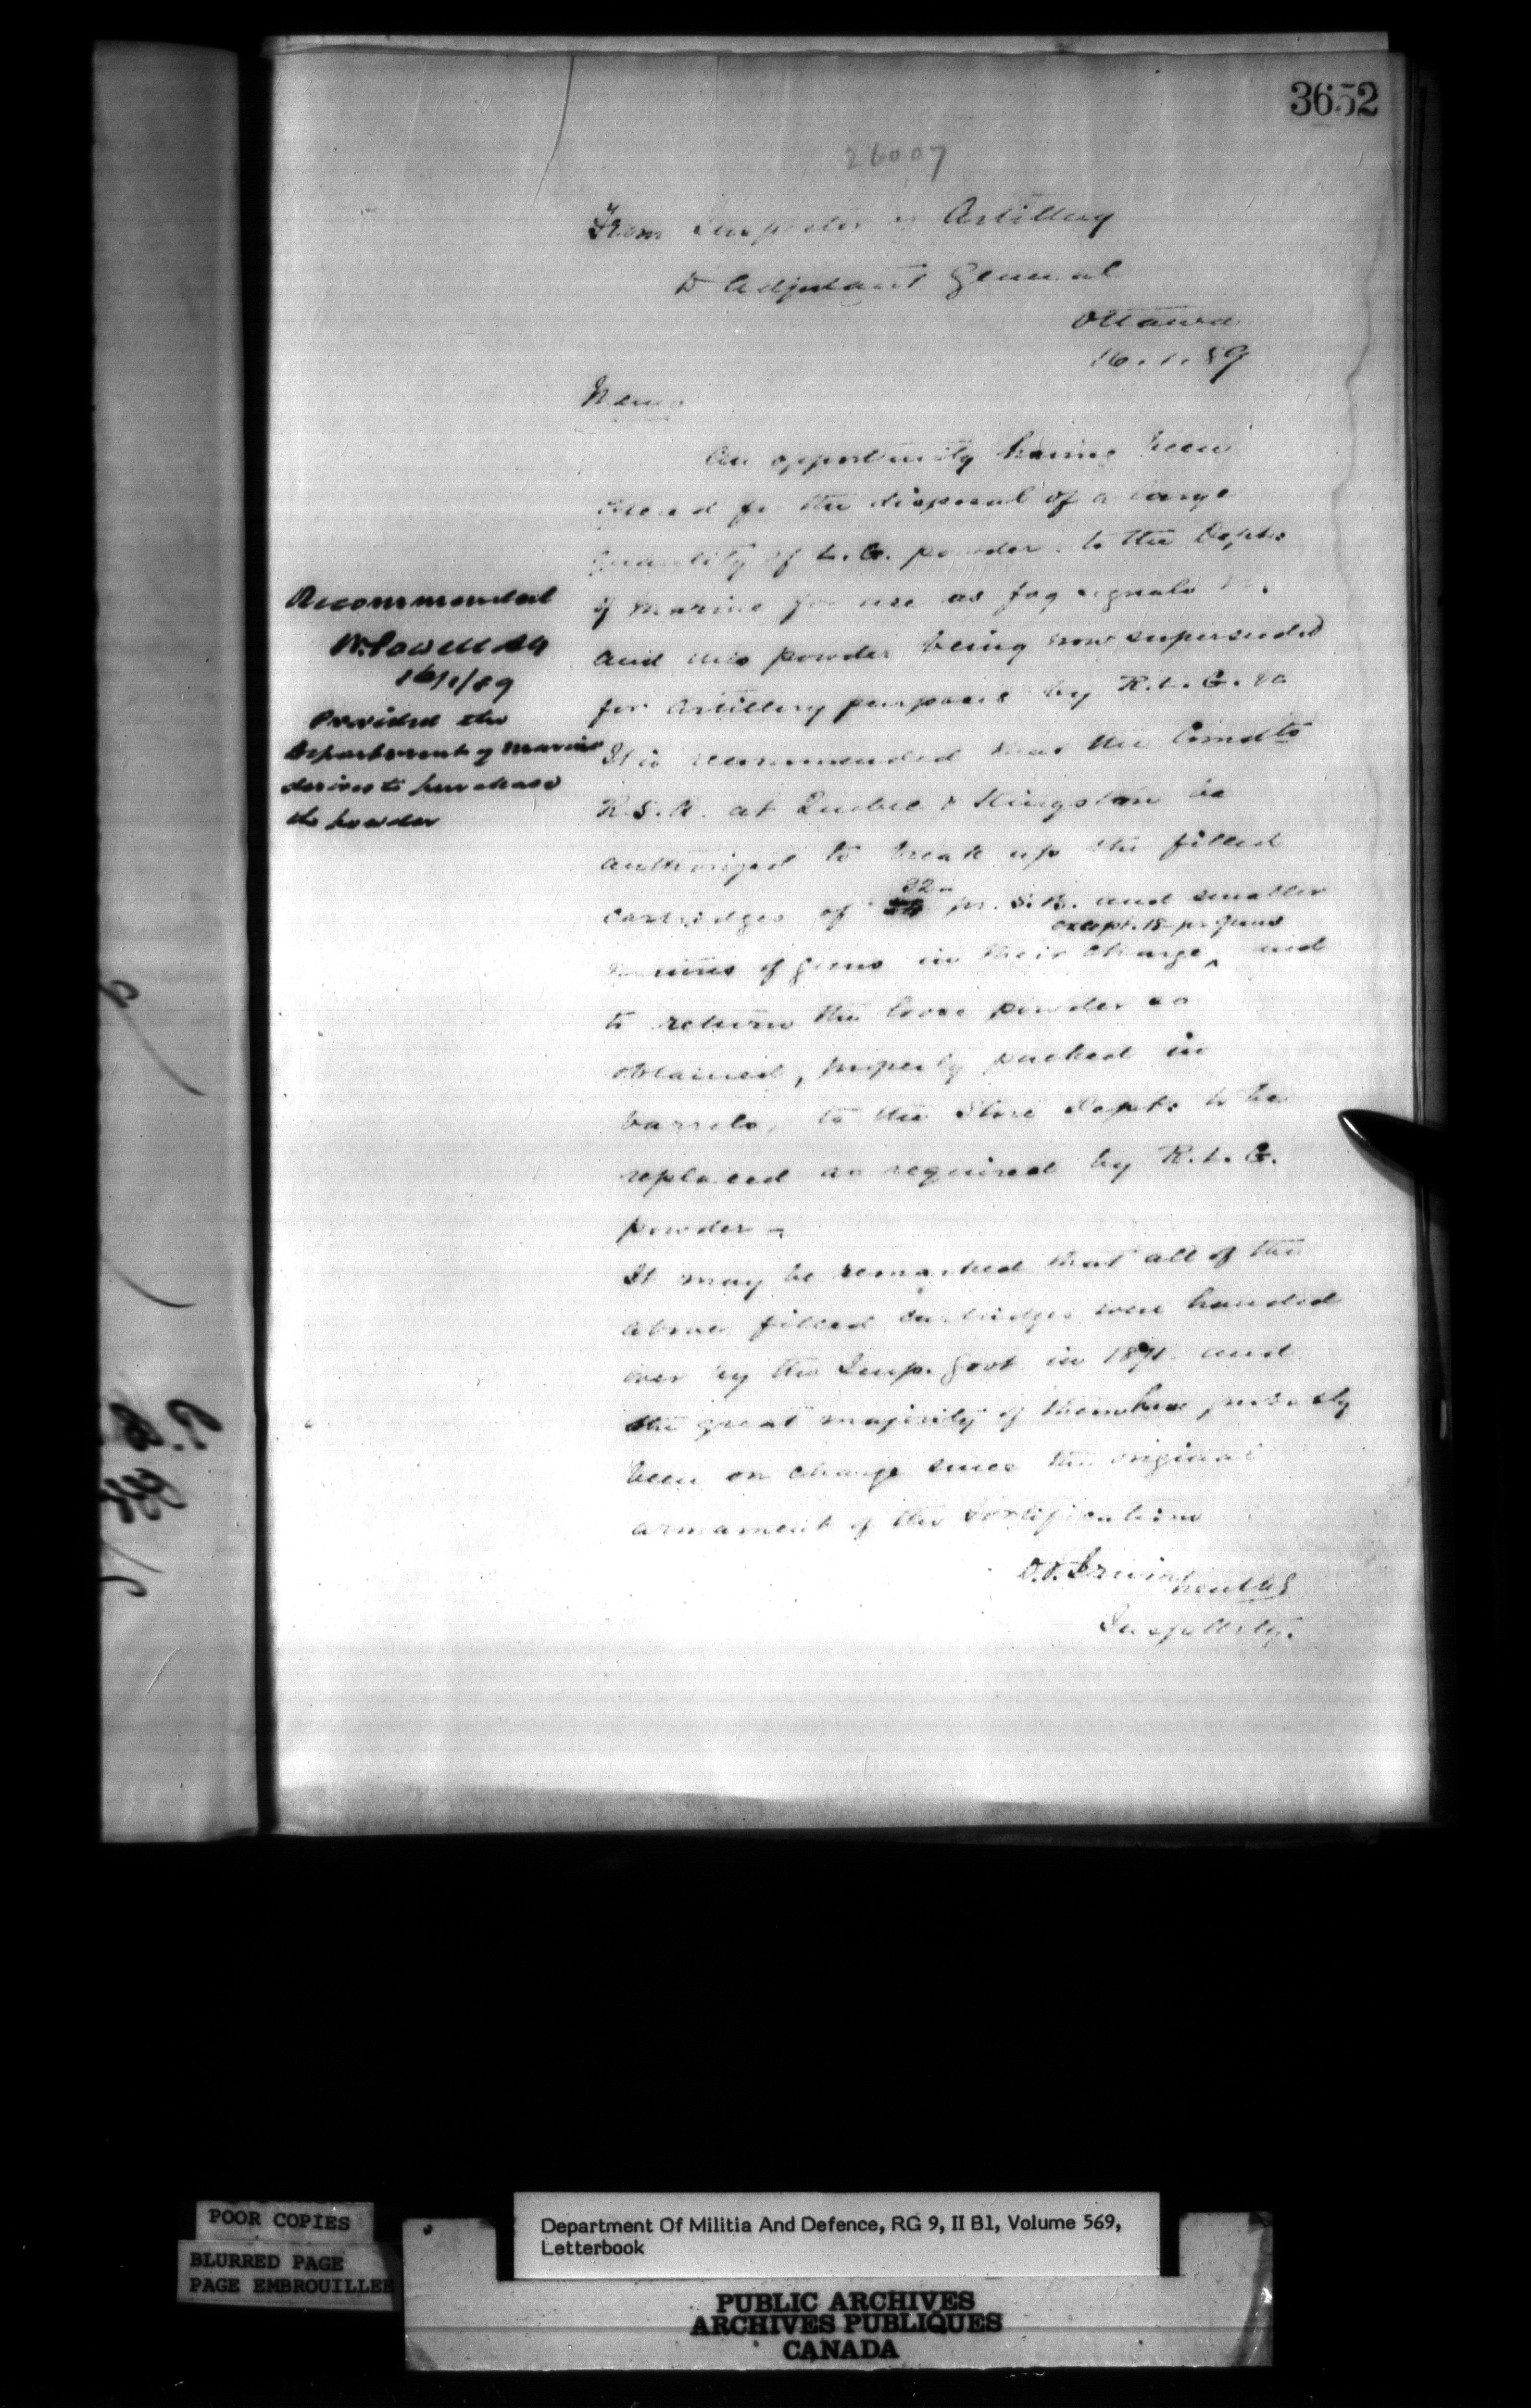 3652
26007
From Inspector of Artillery
to Adjutant General
Ottawa
16.1.89
Memo
An opportunity having been
for the disposal of a large
quantity of L.G. powder to the Dept:
of Marine for use as fog signals
and this powder being now superseded
for Artillery purposes by R.L.G. &c
It is recommended that the Comdts
R.S.A. at Quebec & Kingston be
authorized to break up the filled
cartridges of 32 pr. S.B. and smaller
except 18 pr guns
natures of guns in their charge ^ and
to return the loose powder so
obtained, properly packed in
barrels, to the Store Dept: to be
replaced as required by R.L.G.
powder –
It may be remarked that all of the
above filled cartridges were handed
over by the Imp. Govt in 1871 and
the great majority of them have probably
been on charge since the original
armament of the fortifications
D.T. Irwin
Insp Arty.
Recommended
W. Powell AG
16/1/89
Provided the
Department of Marine
desires to purchase
the powder
POOR COPIES
BLURRED PAGE
PAGE EMBROUILLEE
Department Of Militia And Defence, RG 9, II B1, Volume 569,
Letterbook
PUBLIC ARCHIVES
ARCHIVES PUBLIQUES
CANADA